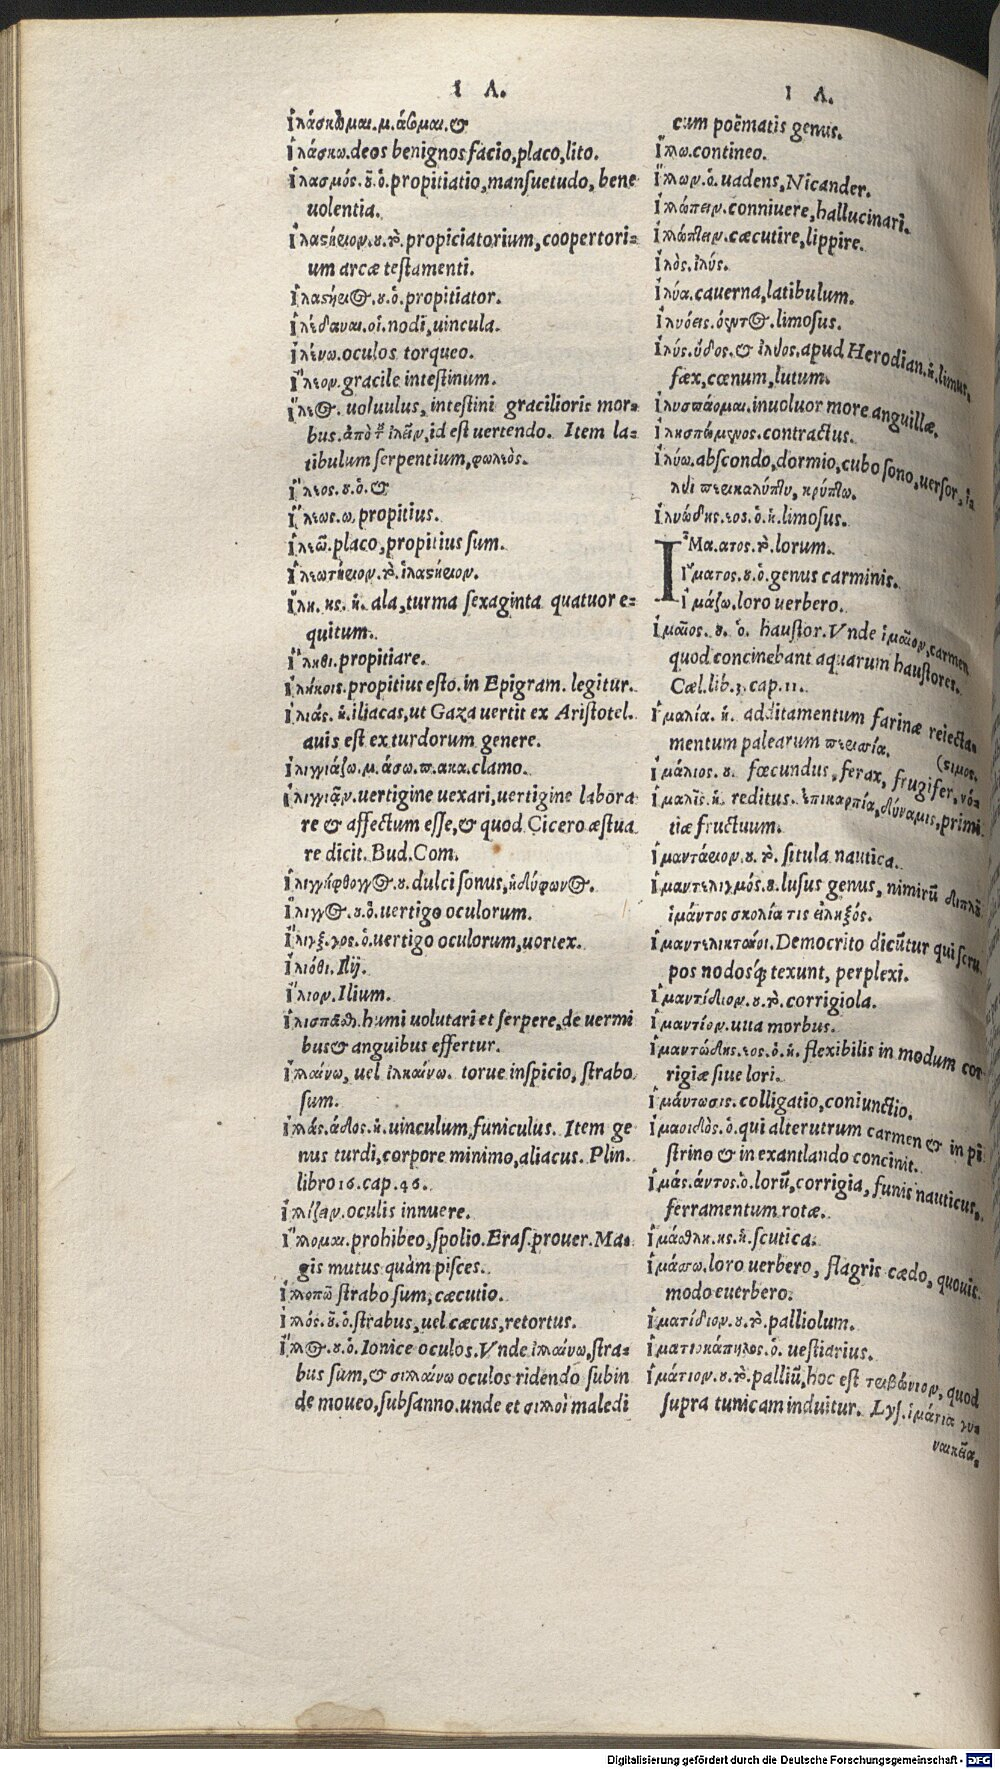 Ι Λ.
ἱλάσκομαι. μ. άσομαι. &
ἱλάσκω. deos benignos facio, placo, lito.
ἱλασμός. ȣ̃. ὁ. propitiatio, mansuetudo, bene
uolentia.
ἱλαστήριον. ȣ. τὸ. propiciatorium, coopertori=
um arcæ testamenti.
ἱλαστήριος. ȣ. ὁ. propitiator.
oculos torqueo.
ἴλεον. gracile intestinum.
ἴλεος. uoluulus, intestini gracilioris mor=
bus. ἀπὸ τȣ͂ ἰλεῖν, id est uertendo. Item la=
tibulum serpentium, φωλεὸς.
ἵλεος. ȣ. ὁ. &
ἵλεως. ω, propitius.
ἱλεῶ. placo, propitius sum.
ἱλεωτήριον. τὸ. ἱλαστήριον.
ἴλη. ης. ἡ. ala, turma sexaginta quatuor e=
quitum.
ἵληθι. propitiare.
ἱλήκοις. propitius esto. in Epigram. legitur.
ἰλιάς. ἡ. iliacas, ut Gaza uertit ex Aristotel.
auis est ex turdorum genere.
ἰλιγγιάζω. μ. άσω. clamo.
ἰλιγγιᾷν. uertigine uexari, uertigine labora
re & affectum esse, & quod Cicero æstua
re dicit. Bud. Com.
dulci sonus, ἡδύφωνος.
ἴλιγγος. ȣ. ὁ. uertigo oculorum.
ἴλιγξ. γος. ὁ. uertigo oculorum, uortex.
ἰλιόθι. Ilij.
ἴλιον. Ilium.
humi uolutari et serpere, de uermi
bus & anguibus effertur.
ἰλλαίνω, uel ἰλκαίνω. torue inspicio, strabo
sum.
ἰλλάς. άδος. ἡ. uinculum, funiculus. Item ge
nus turdi, corpore minimo, aliacus. Plin.
libro 16. cap. 46.
ἰλλίζειν. oculis innuere.
ἴλλομαι. prohibeo, spolio. Eras. prouer. Ma=
gis mutus quàm pisces.
ἰλλοπῶ strabo sum, cæcutio.
ἰλλός. ȣ̃. ὁ. strabus, uel cæcus, retortus.
ἴλλος. ȣ. ὁ. Ionice oculos. Vnde ἰλλαίνω, stra=
bus sum, & σιλλαίνω oculos ridendo subin
de moueo, subsanno. unde et σιλλοὶ maledi
Ι Λ.
cum poëmatis genus.
ἴλλω. contineo.
ἴλλων. ὁ. uadens, Nicander.
ἰλλώπειν. conniuere, hallucinari.
ἰλλώπτειν. cæcutire, lippire.
ἰλὸς. ἰλύς.
ἰλύα. cauerna, latibulum.
ἰλυόεις. όεντος. limosus.
ἰλύς. ύδος. & ἰλύος. apud Herodian. ἡ. limus,
fæx, cœnum, lutum.
ἰλυσπάομαι. inuoluor more anguillæ.
contractus.
ἰλύω. abscondo, dormio, cubo sono, uersor,
περικαλύπτω, κρύπτω.
ἰλυώδης. εος. ὁ. ἡ. limosus.
ἾΜα. ατος. τὸ. lorum.
ἵματος. ȣ. ὁ. genus carminis.
ἱμάζω. loro uerbero.
ἱμαῖος. ȣ. ὁ. haustor. Vnde ἱμαῖον, carmen
quod concinebant aquarum haustores.
Cæl. lib. 3. cap. 11.
ἱμαλία. ἡ. additamentum farinæ reiecta=
mentum palearum
(σιμος.
ἱμάλιος. ȣ. fœcundus, ferax, frugifer, νό=
ἱμαλὶς. ἡ. reditus. ἐπικαρπία, δύναμις, primi
tiæ fructuum.
ἱμαντάριον. ȣ. τὸ. situla nautica.
ἱμαντελιγμός. ȣ. lusus genus, nimirũ διπλȣ͂
ἱμάντος σκολία τις εἴληξός.
ἱμαντελικτοὶ. Democrito dicũtur qui scru
pos nodosq́; texunt, perplexi.
ἱμαντίδιον. ȣ. τὸ. corrigiola.
ἱμαντίον. uua morbus.
ἱμαντώδης. εος. ὁ. ἡ. flexibilis in modum cor
rigiæ siue lori.
ἱμάντωσις. colligatio, coniunctio.
ἱμαοιδὸς. ὁ. qui alterutrum carmen & in pi
strino & in exantlando concinit.
ἱμάς. άντος. ὁ. lorũ, corrigia, funis nauticus,
ferramentum rotæ.
ἱμάσθλη. ης. ἡ. scutica.
ἱμάσσω. loro uerbero, flagris cædo, quouis
modo euerbero.
ἱματίδιον. ȣ. τὸ. palliolum.
ἱματιοκάπηλος. ὁ. uestiarius.
ἱμάτιον. ȣ. τὸ. palliũ, hoc est τριβώνιον, quod
supra tunicam induitur. Lys. ἱμάτια γυ=
ναικεῖα,
Digitalisierung gefördert durch die Deutsche Forschungsgemeinschaft - DFG